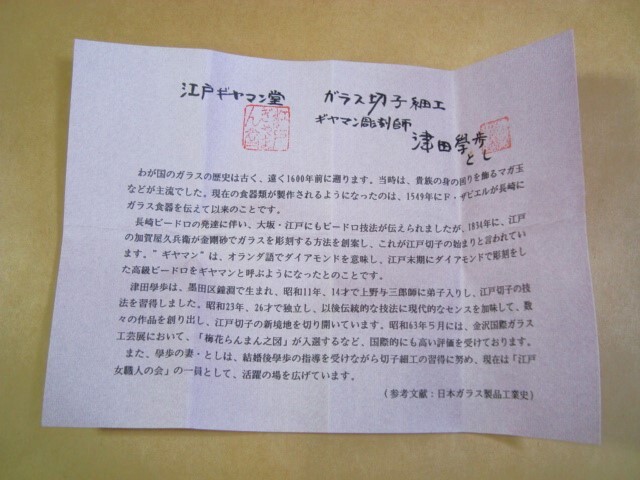 江戸ギヤマン堂
ガラス切子細工
ギヤマン彫刻師
津田學歩
とし
わが国のガラスの歴史は古く、遠く1600年前に遡ります。当時は、貴族の身の回りを飾るマガ玉
などが主流でした。現在の食器類が製作されるようになったのは、1549年にF・ザビエルが長崎に
ガラス食器を伝えて以来のことです。
長崎ビードロの発達に伴い、大坂・江戸にもビードロ技法が伝えられましたが、1834年に、江戸
の加賀屋久兵衛が金剛砂でガラスを彫刻する方法を創案し、これが江戸切子の始まりと言われてい
ます。”ギヤマン”は、オランダ語でダイアモンドを意味し、江戸末期にダイアモンドで彫刻をし
た高級ビードロをギヤマンと呼ぶようになったとのことです。
津田學歩は、墨田区鐘淵で生まれ、昭和11年、14才で上野与三郎師に弟子入りし、江戸切子の技
法を習得しました。昭和23年、26才で独立し、以後伝統的な技法に現代的なセンスを加味して、数
々の作品を創り出し、江戸切子の新境地を切り開いています。昭和63年5月には、金沢国際ガラス
工芸展において、「梅花らんまん之図」が入選するなど、国際的にも高い評価を受けております。
また、學歩の妻・としは、結婚後學歩の指導を受けながら切子細工の習得に努め、現在は「江戸
女職人の会」の一員として、活躍の場を広げています。
（参考文献：日本ガラス製品工業史）